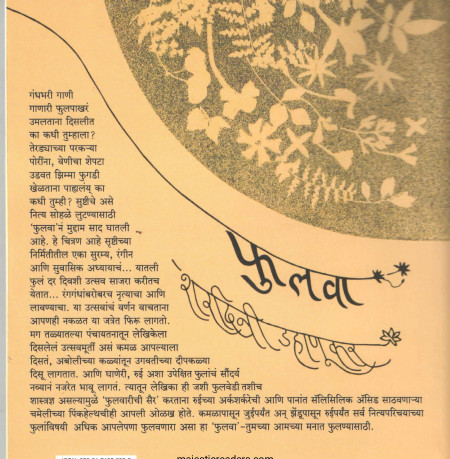 गंधभरी गाणी
गाणारी फुलपाखरं
उमलताना दिसलीत
का कधी तुम्हाला?
तेरड्याच्या परकऱ्या
पोरींना, वेणीचा शेपटा
उडवत झिम्मा फुगडी
खेळताना पाह्यलंय् का
कधी तुम्ही? सृष्टीचे असे
नित्य सोहळे लुटण्यासाठी
'फुलवा'नं मुद्दाम साद घातली
आहे. हे चित्रण आहे सृष्टीच्या
निर्मितीतील एका सुरम्य, रंगीन
आणि सुवासिक अध्यायाचं... यातली
फुलं दर दिवशी उत्सव साजरा करीतच
येतात... रंगगंधांबरोबरच नृत्याचा आणि
लावण्याचा. या उत्सवांचं वर्णन वाचताना
आपणही नकळत या जत्रेत फिरू लागतो.
मग तळ्यातल्या पंचायतनातून लेखिकेला
दिसलेलं उत्सवमूर्ती असं कमळ आपल्याला
दिसतं, अबोलीच्या कळ्यांतून उगवतीच्या दीपकळ्या
दिसू लागतात. आणि घाणेरी, रुई अशा उपेक्षित फुलांचं सौंदर्य
नव्यानं नजरेत भावू लागतं. त्यातून लेखिका ही जशी फुलवेडी तशीच
शास्त्रज्ञ असल्यामुळे 'फुलवारीची सैर' करताना रुईच्या अर्कशर्करेची आणि पानांत सॅलिसिलिक ॲसिड साठवणाऱ्या
चमेलीच्या पिंकहेल्थचीही आपली ओळख होते. कमळापासून जुईपर्यंत अन् झेंडूपासून रुईपर्यंत सर्व नित्यपरिचयाच्या
फुलांविषयी अधिक आपलेपणा फुलवणारा असा हा 'फुलवा'–तुमच्या आमच्या मनात फुलण्यासाठी.
फुलवा
शरदिनी डहाणूकर
majesticreaders.com